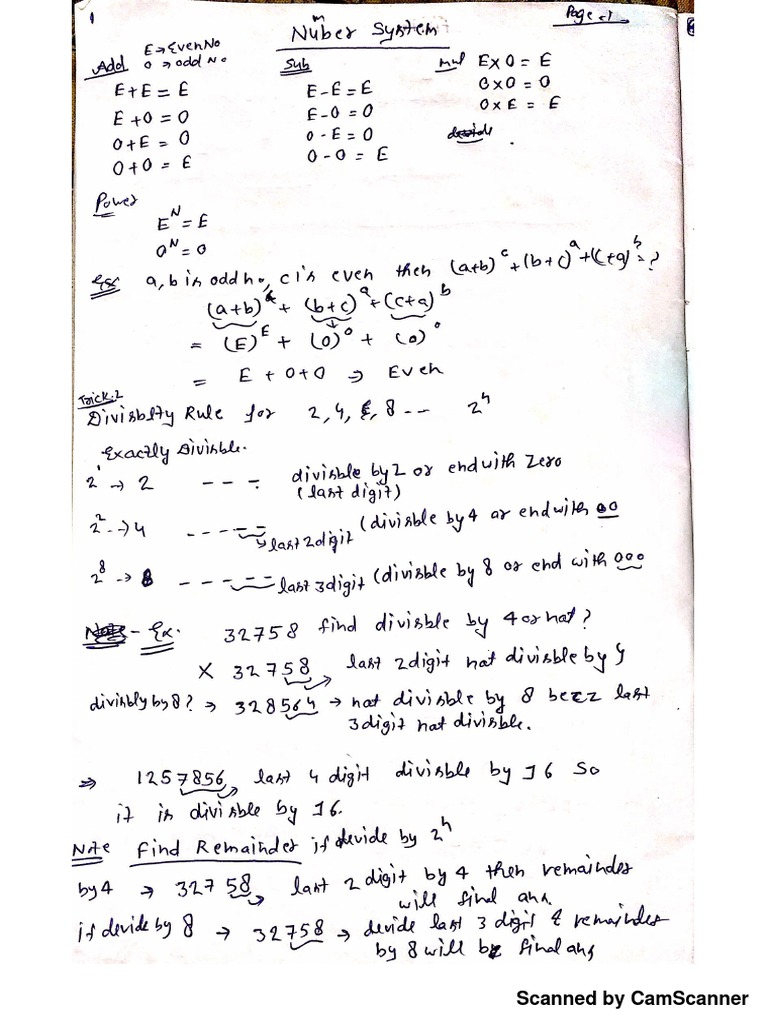 1
Page-1
Nuber System
m
E → Even No
Add O → odd No
E+E = E
E+O = O
O+E = O
O+O = E
Sub
E-E = E
E-O = O
O-E = O
O-O = E
mul E×O = E
O×O = O
O×E = E
Power
E^N = E
O^N = O
Ex a, b is odd no, c is even then (a+b)^c + (b+c)^a + (c+a)^b = ?
(a+b)^c + (b+c)^a + (c+a)^b
= (E)^E + (O)^O + (O)^O
= E + O+O ⇒ Even
Trick:2
Divisblty Rule for 2, 4, 8 -- 2^n
Exactly Divisble.
2^1 → 2 --- divisble by 2 or end with Zero
(last digit)
2^2 → 4 ----- last 2digit (divisble by 4 or end with 00
2^8 → 8 ----- last 3digit (divisble by 8 or end with 000
- Ex. 32758 find divisble by 4 or not?
× 32758 last 2digit not divisble by 4
divisbly by 8? → 328564 → not divisble by 8 becz last
3digit not divisble.
⇒ 1257856 last 4 digit divisble by 16 so
it is divisble by 16.
Note Find Remainder if devide by 2^n
by 4 → 32758 last 2 digit by 4 then remainder
will find ans.
if devide by 8 → 32758 → devide last 3 digit & remainder
by 8 will be find ans
Scanned by CamScanner